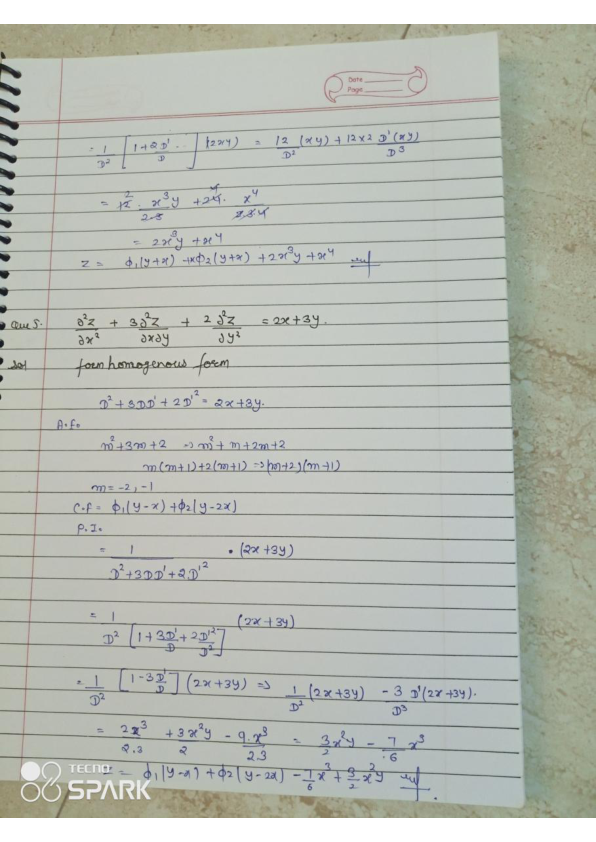 Date
Page
= 1/D² [1+2D'/D ..] (12xy) = 12/D² (xy) + 12×2 D'(xy)/D³
= 12 2 · x³y/2·3 + 24 · x⁴/2·3·4
= 2x³y + x⁴
z = ϕ₁(y+x) + xϕ₂(y+x) + 2x³y + x⁴
Que 5. ∂²z/∂x² + 3∂²z/∂x∂y + 2∂²z/∂y² = 2x+3y.
Sol homogenous form
D² + 3DD' + 2D'² = 2x+3y.
A.E=
m²+3m+2 => m²+m+2m+2
m(m+1)+2(m+1) => (m+2)(m+1)
m = -2, -1
C.F = ϕ₁(y-x) + ϕ₂(y-2x)
P.I=
= 1/D²+3DD'+2D'² · (2x+3y)
= 1/D² [1+3D'/D + 2D'²/D²] (2x+3y)
= 1/D² [1-3D'/D] (2x+3y) => 1/D² (2x+3y) - 3 D'(2x+3y)/D³.
= 2x³/2.3 + 3x²y/2 - 9.x³/2.3 = 3/2 x²y - 7/6 x³
z = ϕ₁(y-x) + ϕ₂(y-2x) - 7/6 x³ + 3/2 x²y
TECNO
SPARK